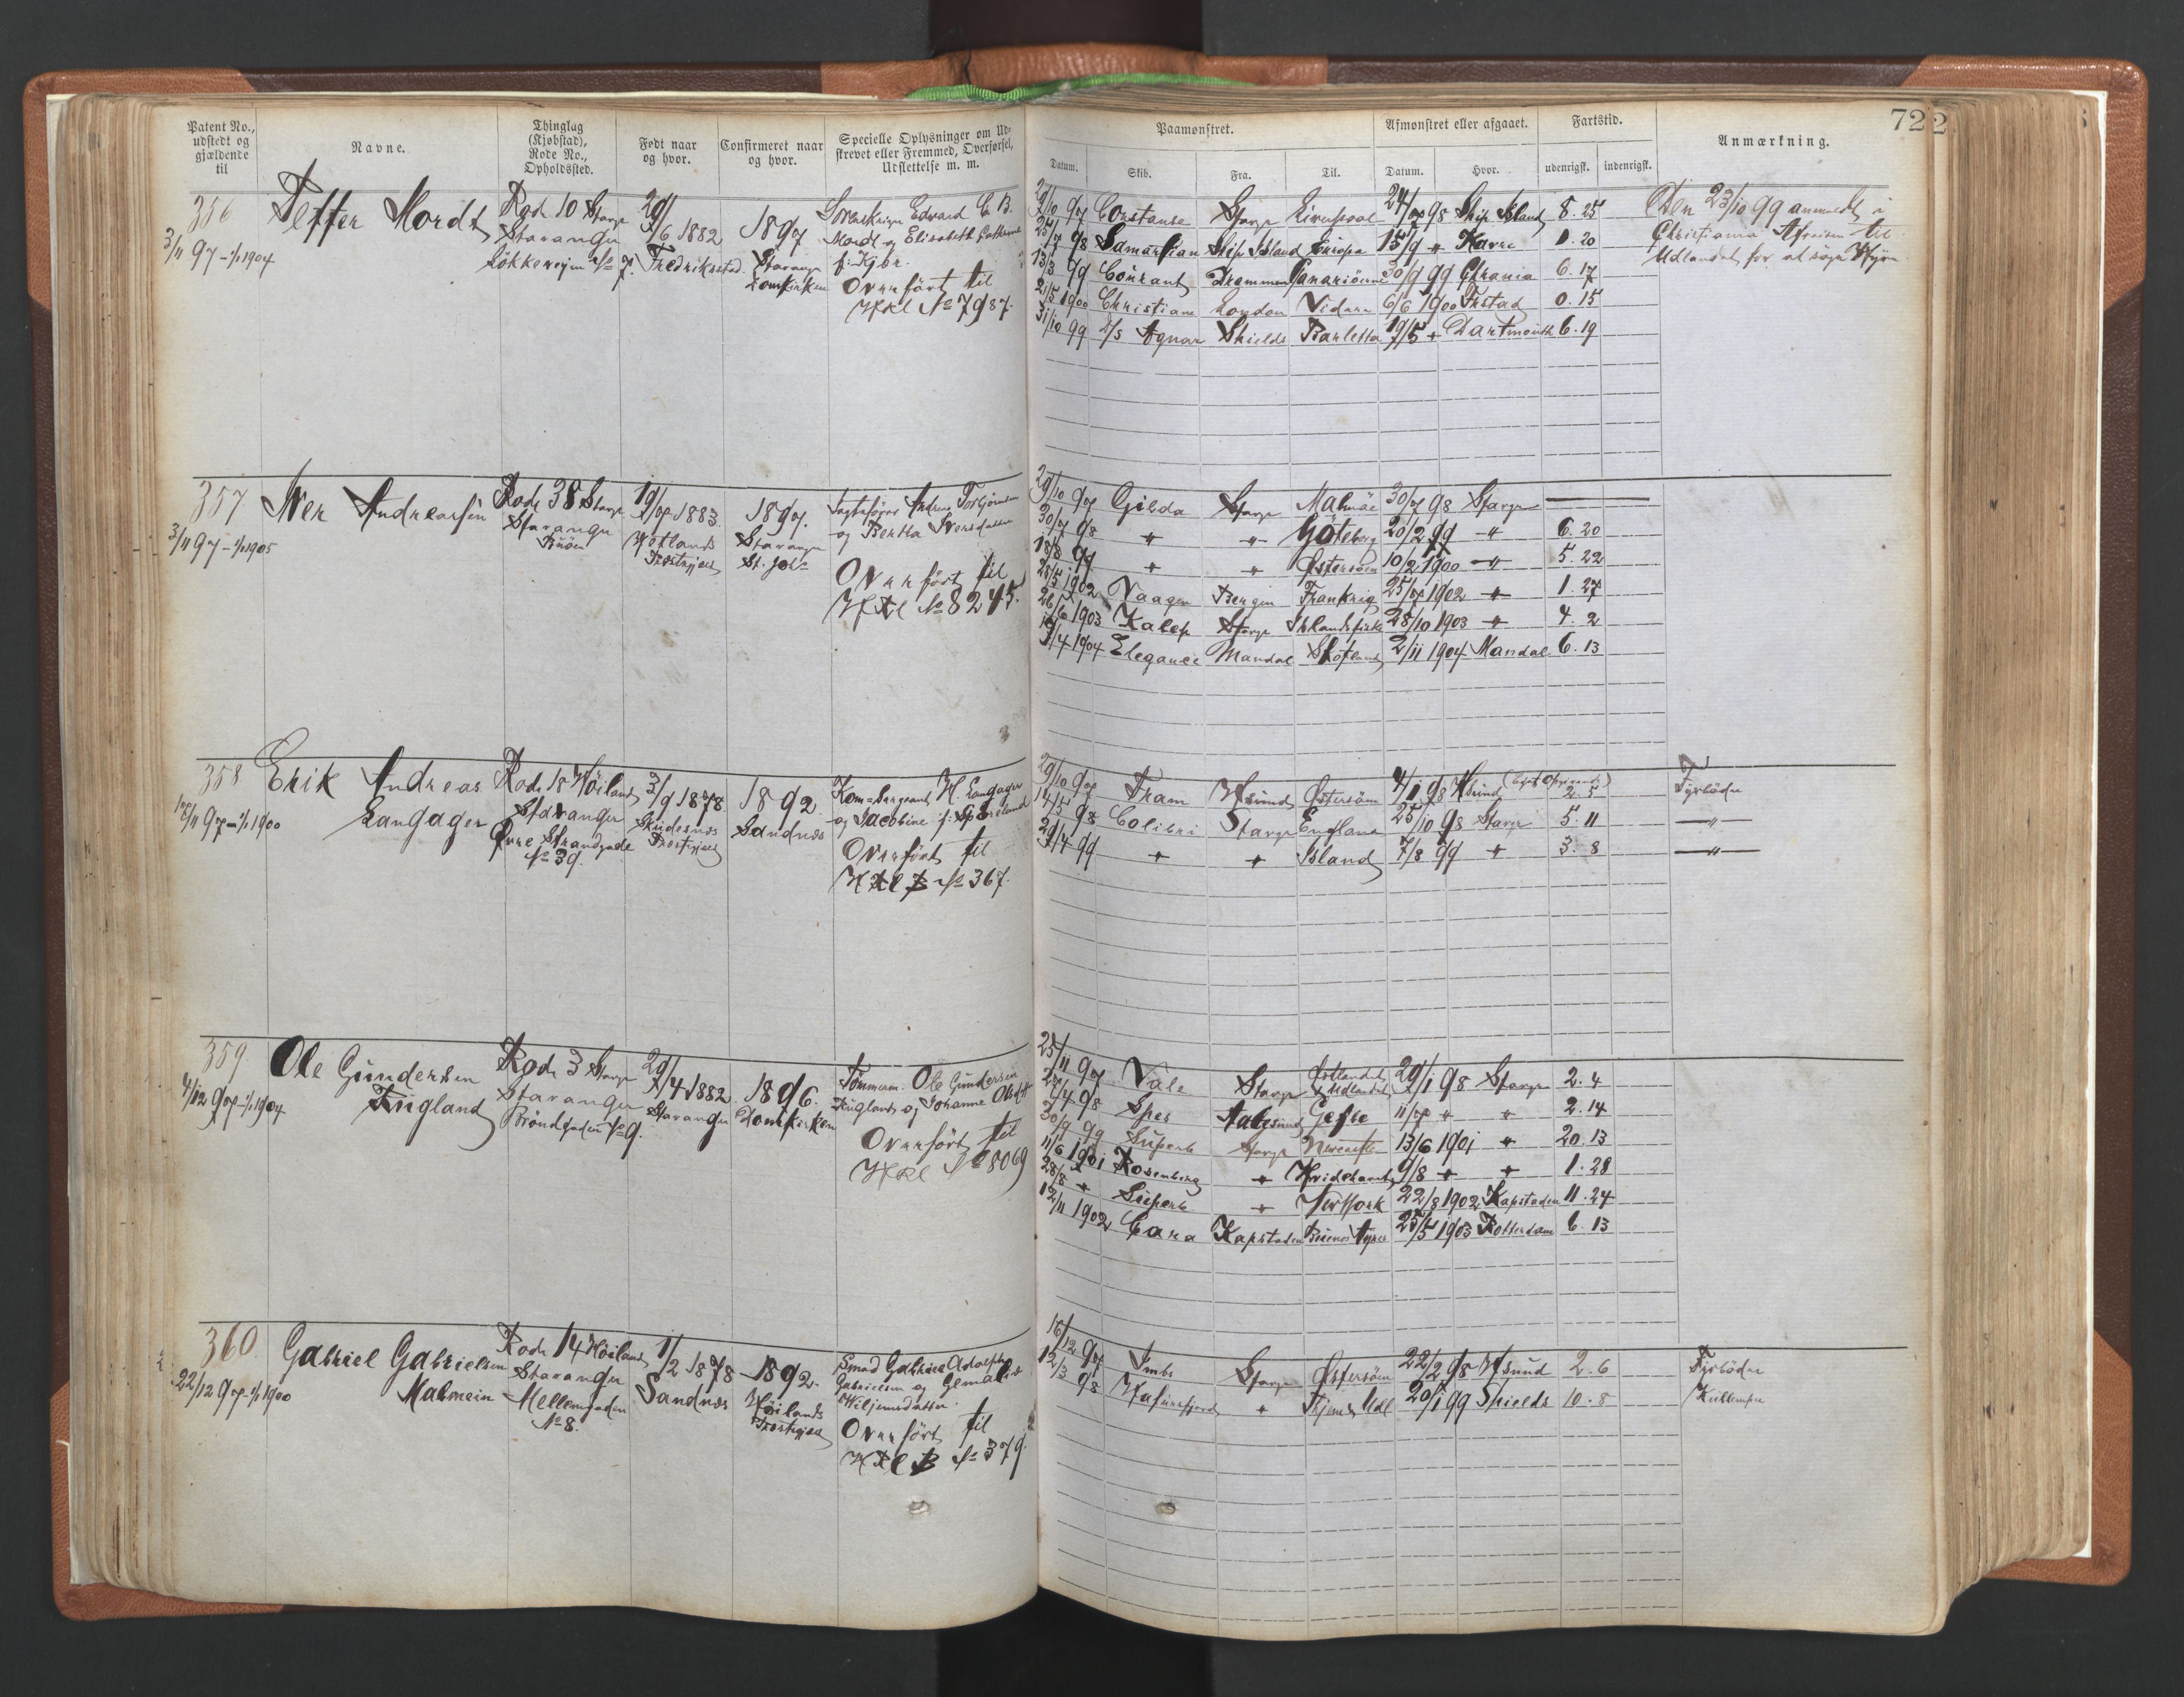 Patent No., udstedt og gjældende til
Navne.
Thinglag (Kjøbstad), Rode No., Opholdssted.
Født naar og hvor.
Confirmeret naar og hvor.
Specielle Oplysninger om Udskrevet eller Fremmed, Overførsel, Udslettelse m. m.
Paamønstret.
Datum. Skib. Fra. Til.
Afmønstret eller afgaaet.
Datum. Hvor.
Fartstid.
udenrigsk. indenrigsk.
Anmærkning.
722
356
3/11 97 - 1/1 1904
Petter Mordt
Rode 10 Stavgr
Stavanger
Løkkevejen No 7.
29/6 1882
Fredriksstad
1897
Stavanger
Domkirken
Sorenskriver Edvard C. B.
Mordt og Elisabeth
f: Kjær.
Overført til
HRl No 7987.
29/10 97 Constanse Stavgr Liverpool 24/7 98 Ship Island 8.25
25/7 98 Samaritan Ship Island Europa 15/9 " Havre 1.20
13/3 99 Courant Drammen Canariøerne 30/9 99 Chrania 6.17
21/5 1900 Christiane London Videre 6/6 1900 Frstad 0.15
31/10 99 D/S Agnar Shields Barletta 19/5 " Dartmouth 6.19
Den 23/10 99 anmeldt i
Christiania Afreisen til
Udlandet for at søge Hyre
357
3/11 97 - 1/1 1905
Iver Andreassen
Rode 38 Stavgr
Stavanger
Buøen
19/7 1883
Hetlands
Præstegjæld
1897.
Stavanger
St. Joh=
Andreas Torbjørnsen
og Bertha Iversdatter
Overført til
HRl No 8245.
29/10 97 Gilda Stavgr Malmøe 30/7 98 Stavgr
30/7 98 " " Göteborg 20/2 99 " 6.20
18/8 99 " " Østersøen 10/2 1900 " 5.22
28/5 1902 Vaagen Bergen Frankrig 25/7 1902 " 1.27
26/6 1903 Kalep Stavgr Islandsfiske 28/10 1903 " 4.2
19/4 1904 Elegance Mandal Skotland 2/11 1904 Mandal 6.13
358
1/1 1900
Erik Andreas
Langager
Rode 18 Høiland
Stavanger
Øvre Strandgade
No 39.
3/9 1878
Skudesnæs
Præstegjæld
1892
Sandnæs
Kom=Sergeant H. Langager
og Jacobine f:
Overført til
HRl B No 367.
29/10 97 Fram Hsund Østersøen 4/1 98 Hsund 2.5
14/5 98 Colibri Stavgr England 25/10 98 Stavgr 5.11
29/4 99 " " Island 7/8 99 " 3.8
Fyrbøder
"
"
359.
4/12 97 - 1/1 1904
Ole Gundersen
Fugland
Rode 3 Stavgr
Stavanger
Brøndgaden No 9.
29/4 1882
Stavanger
1896.
Domkirken
Tømmerm. Ole Gundersen
Fugland og Johanne Olsdtr
Overført til
HRl No 8069
25/11 97 Vale Stavgr Østlandet & Udlandet 29/1 98 Stavgr 2.4
27/4 98 Spes Aalesund Gefle 11/7 " " 2.14
30/9 99 Superb Stavgr 13/6 1901 " 20.13
11/6 1901 Rosenberg " Hvidehavet 9/8 " " 1.28
28/8 " Superb " New York 22/8 1902 Kapstaden 11.24
12/11 1902 Cara Kapstaden Buenos Ayres 25/5 1903 Rotterdam 6.13
360
22/12 97 - 1/1 1900
Gabriel Gabrielsen
Malmein
Rode 14 Høiland
Stavanger
Mellemgaden
No 8.
1/2 1878
Sandnæs
1892.
Høilands
Præstegjæld
Smed Gabriel Adolph
Gabrielsen og
Wiljumsdatter.
Overført til
HRl B No 379.
16/12 97 Imbs Stavgr Østersøen 22/2 98 Hsund 2.6
12/3 98 Hafursfjord " Udl 20/1 99 Shields 10.8
Fyrbøder
Kullemper